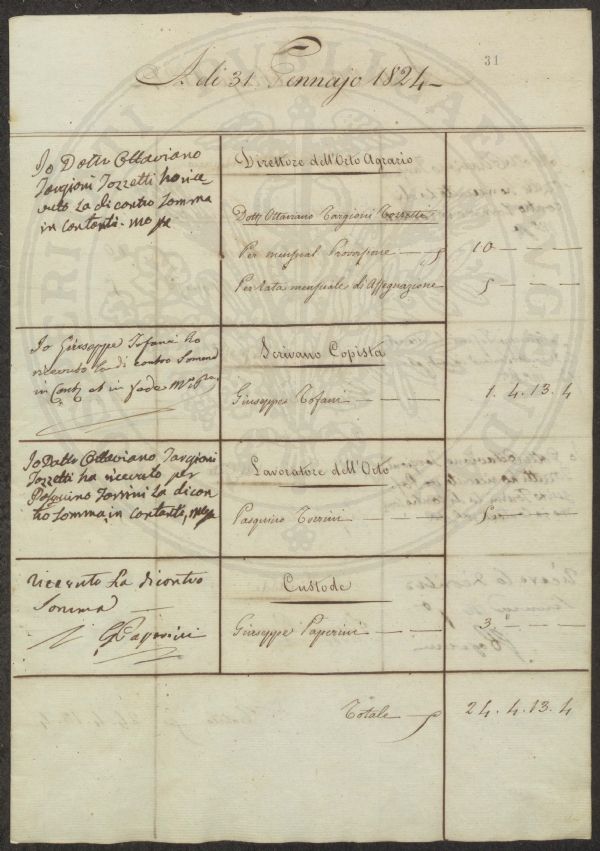 31
A di 31 Gennajo 1824
Io Dottr Ottaviano
Targioni Tozzetti ho rice-
vuto La di contro Somma
in Contanti. mo pa
Direttore dell'Orto Agrario
Dottr Ottaviano Targioni Tozzetti
Per mensual Provisione — 10 — — —
Per rata mensuale di Assegnazione 5 — — —
Io Giuseppe Tofani ho
ricevuto la di contro Somma
in Conti et in fede
Scrivano Copista
Giuseppe Tofani — — — 1. 4. 13. 4
Io Dottr Ottaviano Targioni
Tozzetti ho ricevuto per
Pasquino Torrini La di con
tro Somma in Contanti, mo pa
Lavoratore dell'Orto
Pasquino Torrini — — — 5 — — —
ricevuto La dicontro
Somma
G Paperini
Custode
Giuseppe Paperini — — — 3 — — —
Totale 24. 4. 13. 4